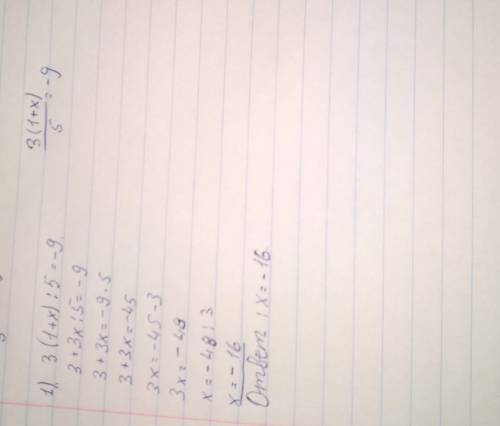 1). 3.(1+x):5=-9.
3+3x:5=-9
3+3x=-9.5
3+3x=-45
3x=-45-3
3x=-48
x=-48:3
x=-16
Ответ: x=-16.
3(1+x)
5
=-9